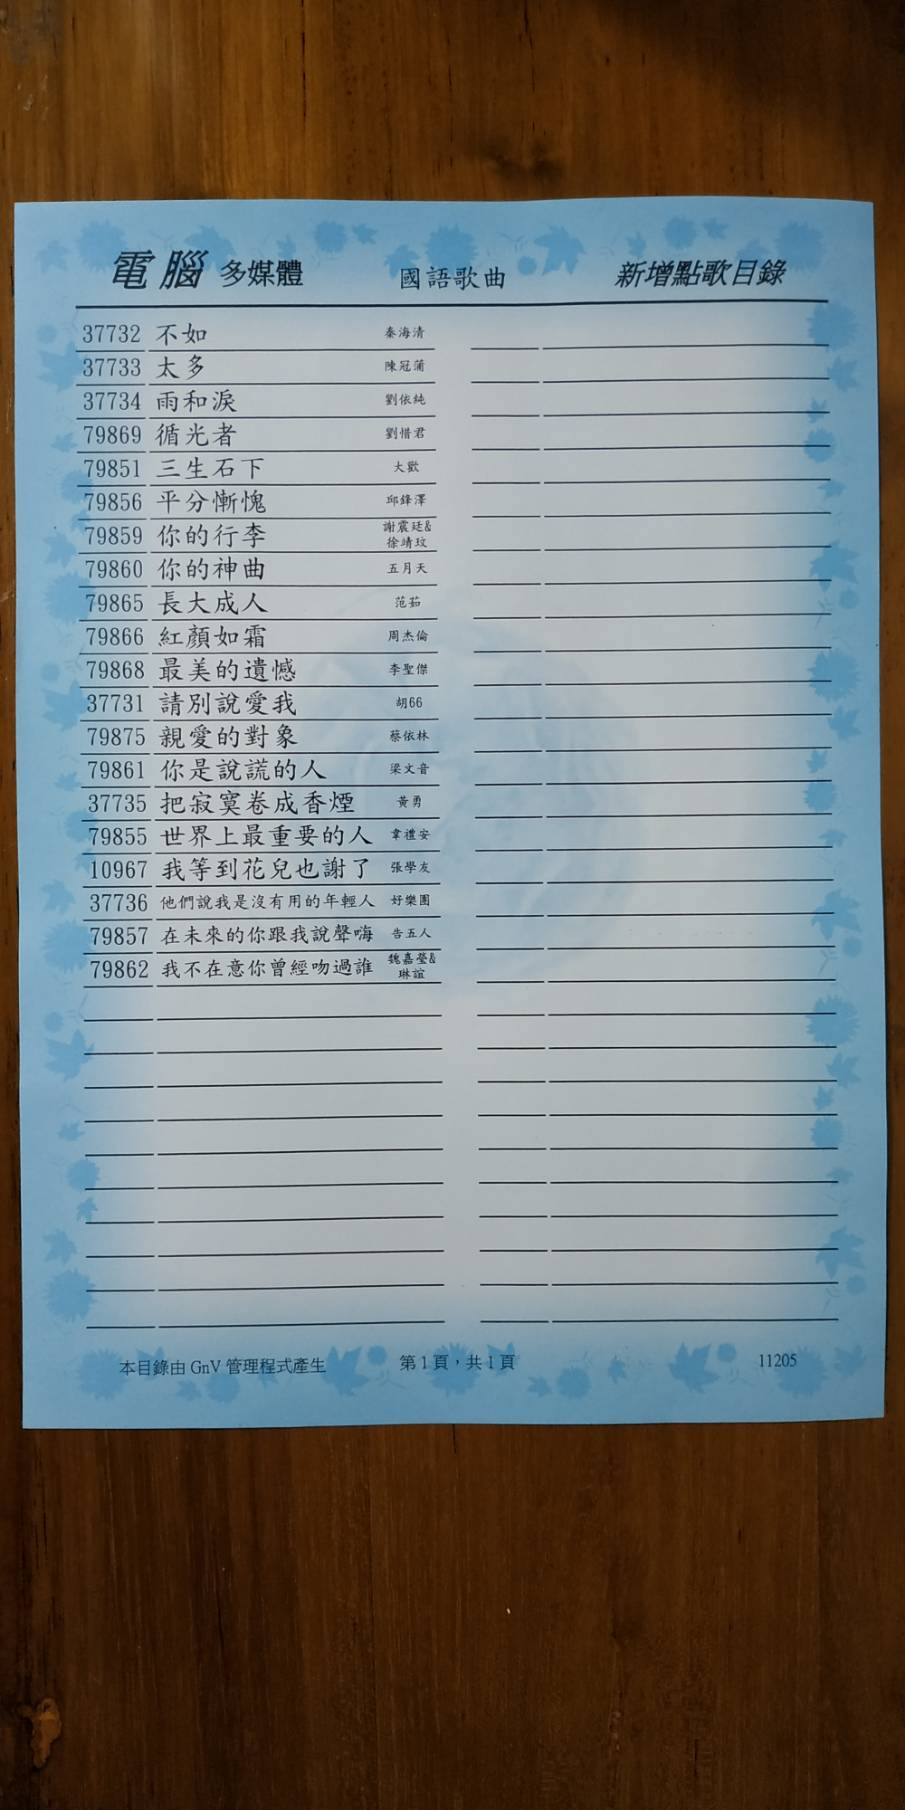 電腦 多媒體 國語歌曲 新增點歌目錄
37732 不如 秦海清
37733 太多 陳冠蒲
37734 雨和淚 劉依純
79869 循光者 劉惜君
79851 三生石下 大歡
79856 平分慚愧 邱鋒澤
79859 你的行李 謝震廷&
徐靖玟
79860 你的神曲 五月天
79865 長大成人 范茹
79866 紅顏如霜 周杰倫
79868 最美的遺憾 李聖傑
37731 請別說愛我 胡66
79875 親愛的對象 蔡依林
79861 你是說謊的人 梁文音
37735 把寂寞卷成香煙 黃勇
79855 世界上最重要的人 韋禮安
10967 我等到花兒也謝了 張學友
37736 他們說我是沒有用的年輕人 好樂團
79857 在未來的你跟我說聲嗨 告五人
79862 我不在意你曾經吻過誰 魏嘉瑩&
琳誼
本目錄由 GnV 管理程式產生 第1頁，共1頁 11205